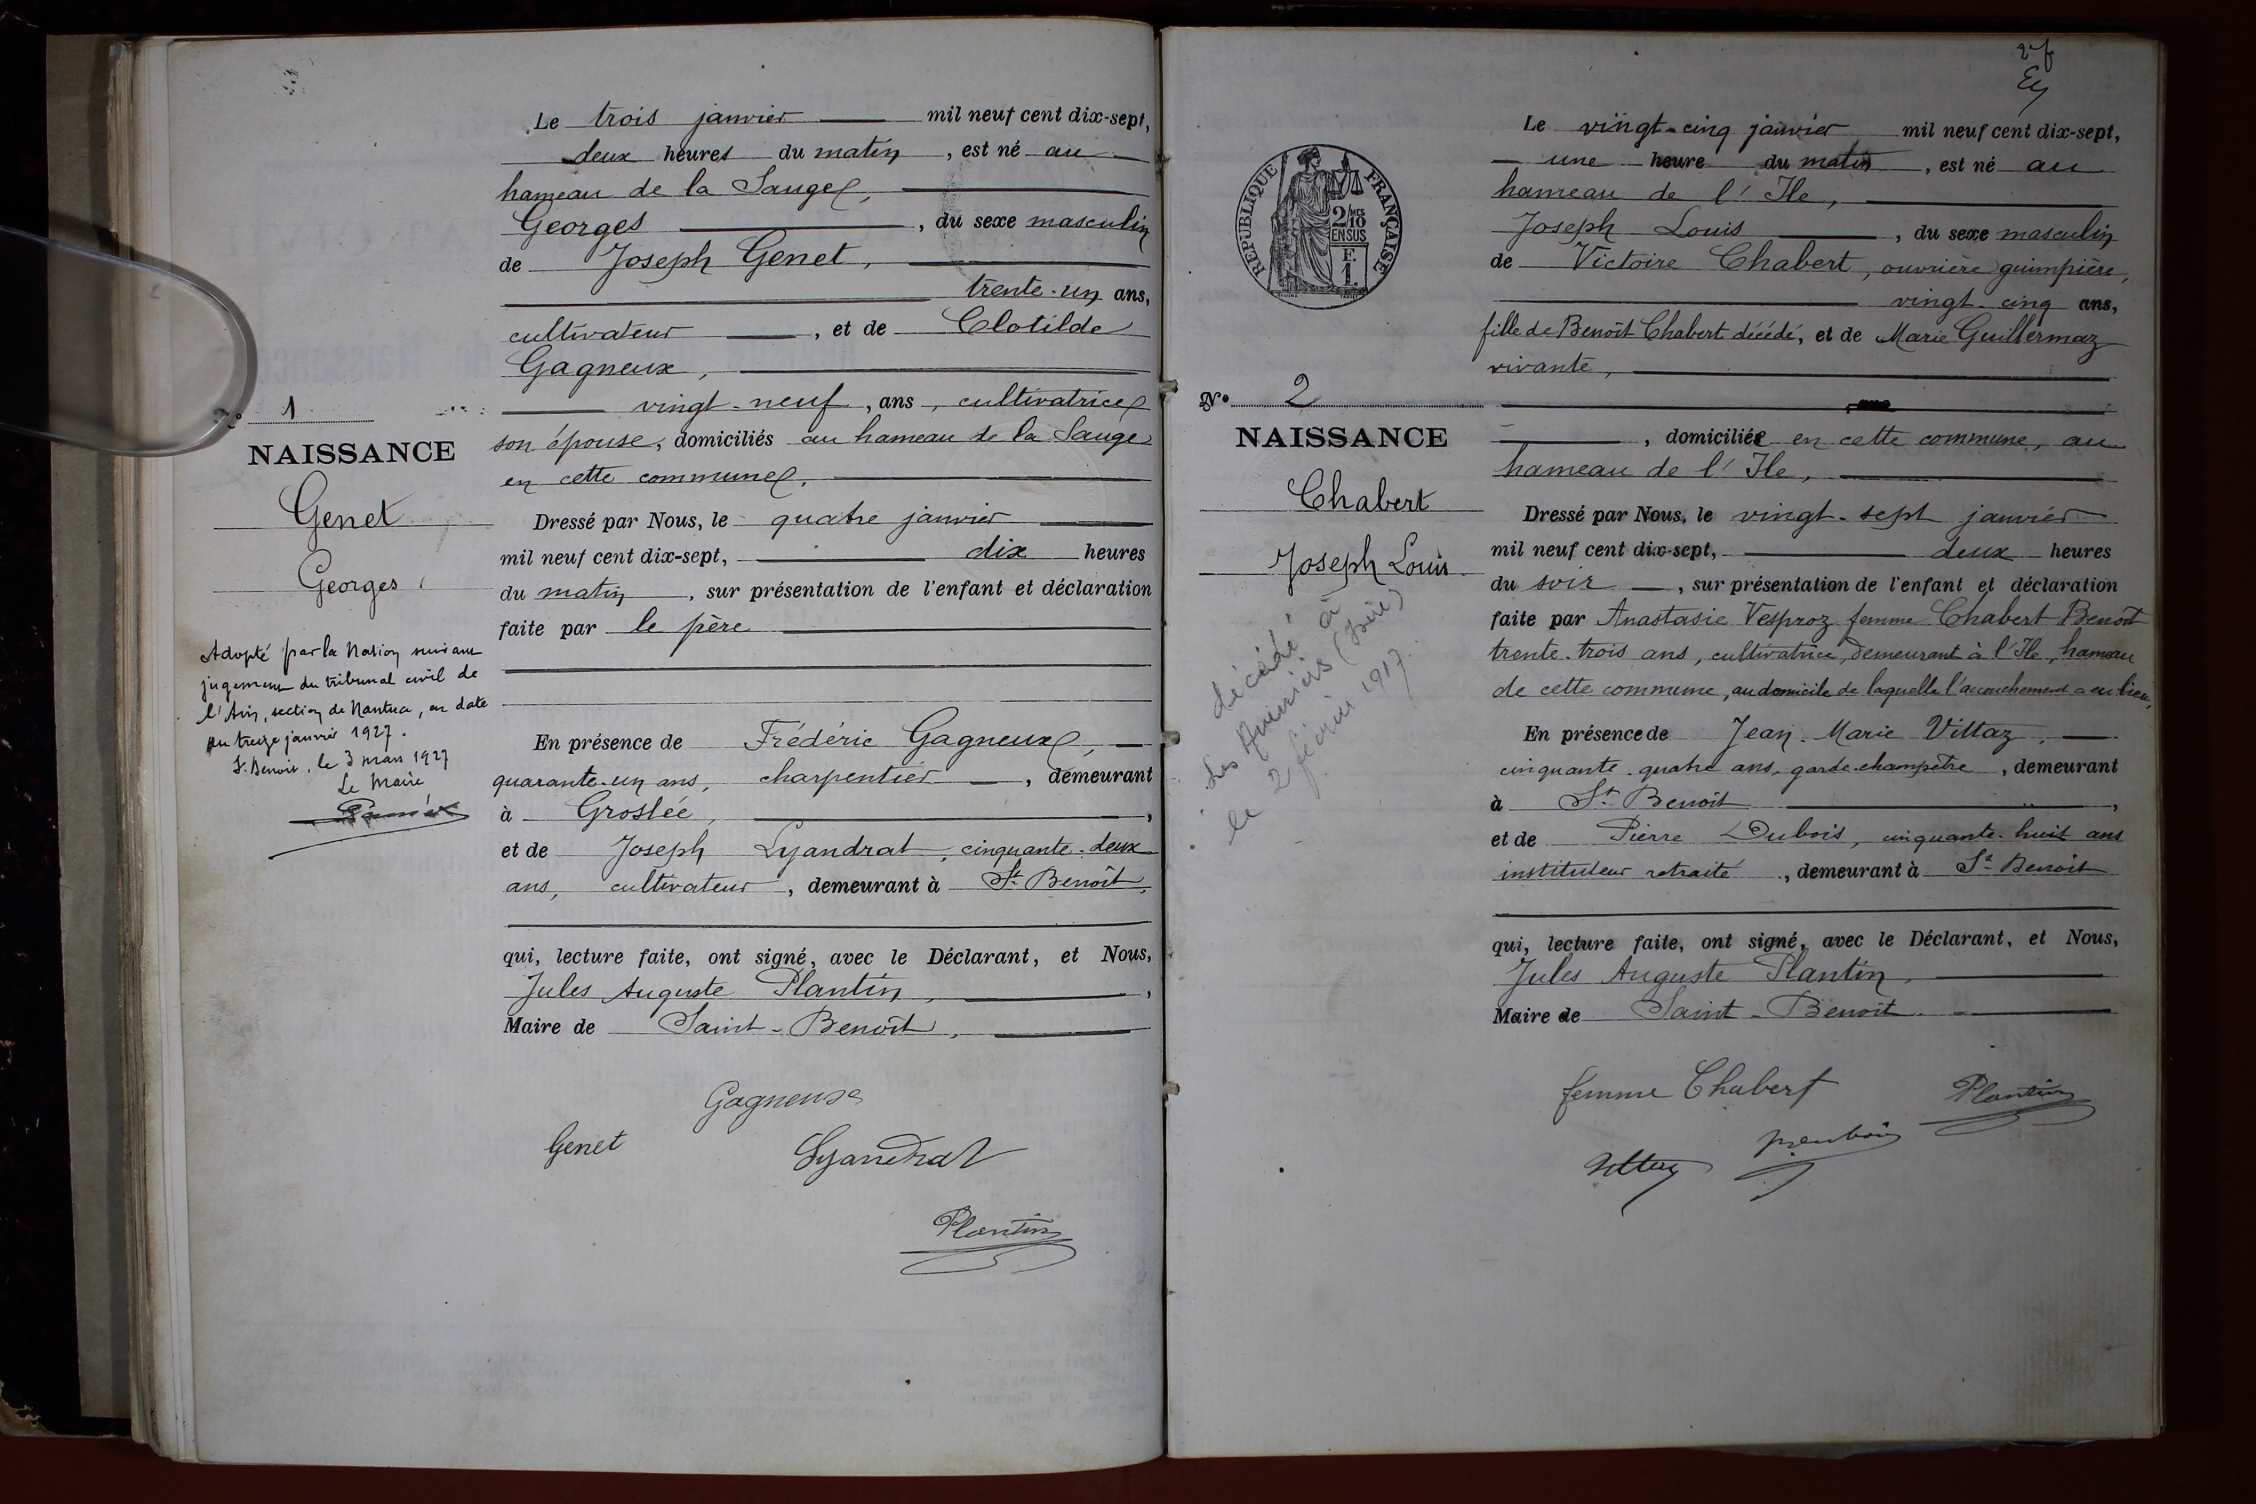 Le trois janvier mil neuf cent dix-sept,
deux heures du matin, est né au
hameau de la Sauge,
Georges, du sexe masculin
de Joseph Genet,
trente-un ans,
cultivateur, et de Clotilde
Gagneux,
vingt-neuf, ans, cultivatrice
son épouse, domiciliés au hameau de la Sauge
en cette commune.
Dressé par Nous, le quatre janvier
mil neuf cent dix-sept, dix heures
du matin, sur présentation de l'enfant et déclaration
faite par le père
En présence de Frédéric Gagneux,
quarante-un ans, charpentier, demeurant
à Groslée,
et de Joseph Lyandrat, cinquante-deux
ans, cultivateur, demeurant à St Benoît,
qui, lecture faite, ont signé, avec le Déclarant, et Nous,
Jules Auguste Plantin,
Maire de Saint-Benoît,
Gagneux
Genet
Lyandrat
Plantin
1
NAISSANCE
Genet
Georges
Adopté par la Nation suivant
jugement du tribunal civil de
l'Ain, section de Nantua, en date
du treize janvier 1927.
St-Benoit, le 3 mars 1927
Le Maire
2 f
RÉPUBLIQUE FRANÇAISE
2/10 MES
EN SUS
F.
1.
N° 2
NAISSANCE
Chabert
Joseph Louis
décédé à
(Isère)
le 2 février 1917
Le vingt-cinq janvier mil neuf cent dix-sept,
une heure du matin, est né au
hameau de l'Ile,
Joseph Louis, du sexe masculin
de Victoire Chabert, ouvrière guimpière,
vingt-cinq ans,
fille de Benoît Chabert décédé, et de Marie Guillermaz
vivante,
, domiciliée en cette commune, au
hameau de l'Ile,
Dressé par Nous, le vingt-sept janvier
mil neuf cent dix-sept, deux heures
du soir, sur présentation de l'enfant et déclaration
faite par Anastasie Vesproz femme Chabert Benoît
trente-trois ans, cultivatrice, demeurant à l'Ile, hameau
de cette commune, au domicile de laquelle l'accouchement a eu lieu,
En présence de Jean-Marie Vittaz,
cinquante-quatre ans, garde-champêtre, demeurant
à St Benoit,
et de Pierre Dubois, cinquante-huit ans
instituteur retraité, demeurant à St Benoit
qui, lecture faite, ont signé, avec le Déclarant, et Nous,
Jules Auguste Plantin,
Maire de Saint-Benoît
femme Chabert
Plantin